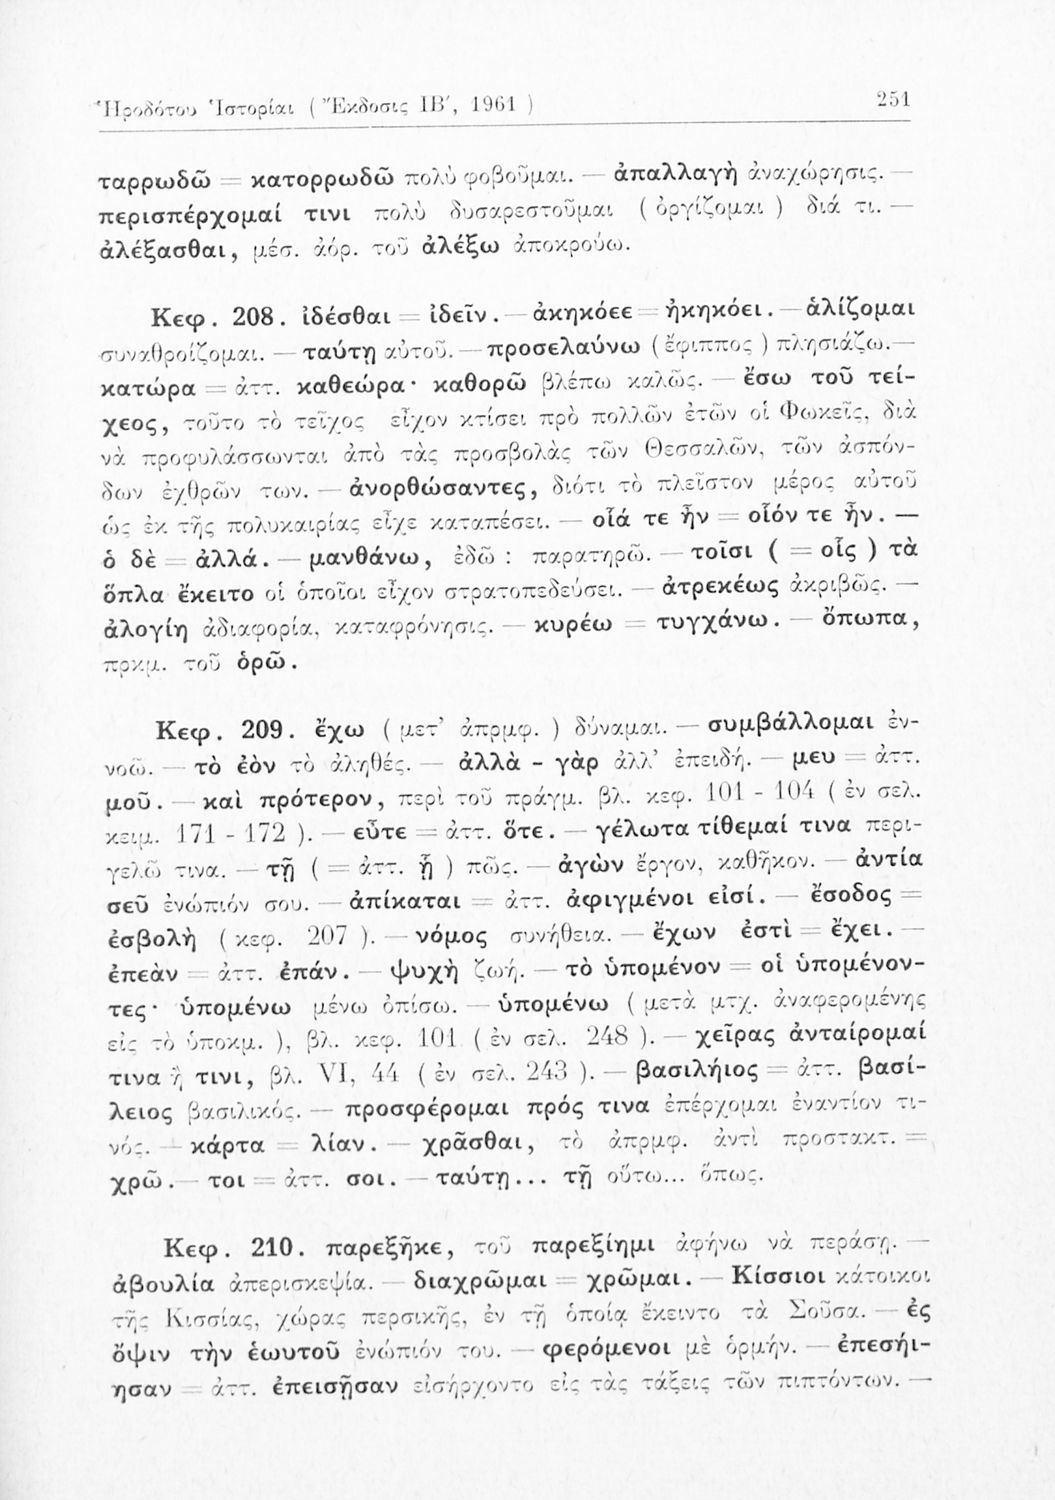 Ἡροδότου Ἱστορίαι ( Ἔκδοσις ΙΒ′, 1961 ) 251
ταρρωδῶ = κατορρωδῶ πολὺ φοβοῦμαι. — ἀπαλλαγὴ ἀναχώρησις. —
περισπέρχομαί τινι πολὺ δυσαρεστοῦμαι ( ὀργίζομαι ) διά τι. —
ἀλέξασθαι, μέσ. ἀόρ. τοῦ ἀλέξω ἀποκρούω.
Κεφ. 208. ἰδέσθαι = ἰδεῖν. — ἀκηκόεε = ἠκηκόει. — ἁλίζομαι
συναθροίζομαι. — ταύτῃ αὐτοῦ. — προσελαύνω ( ἔφιππος ) πλησιάζω. —
κατώρα = ἀττ. καθεώρα· καθορῶ βλέπω καλῶς. — ἔσω τοῦ τεί-
χεος, τοῦτο τὸ τεῖχος εἶχον κτίσει πρὸ πολλῶν ἐτῶν οἱ Φωκεῖς, διὰ
νὰ προφυλάσσωνται ἀπὸ τὰς προσβολὰς τῶν Θεσσαλῶν, τῶν ἀσπόν-
δων ἐχθρῶν των. — ἀνορθώσαντες, διότι τὸ πλεῖστον μέρος αὐτοῦ
ὡς ἐκ τῆς πολυκαιρίας εἶχε καταπέσει. — οἷά τε ἦν = οἷόν τε ἦν. —
ὁ δὲ = ἀλλά. — μανθάνω, ἐδῶ : παρατηρῶ. — τοῖσι ( = οἷς ) τὰ
ὅπλα ἔκειτο οἱ ὁποῖοι εἶχον στρατοπεδεύσει. — ἀτρεκέως ἀκριβῶς. —
ἀλογίη ἀδιαφορία, καταφρόνησις. — κυρέω = τυγχάνω. — ὄπωπα,
πρκμ. τοῦ ὁρῶ.
Κεφ. 209. ἔχω ( μετ’ ἀπρμφ. ) δύναμαι. — συμβάλλομαι ἐν-
νοῶ. — τὸ ἐὸν τὸ ἀληθές. — ἀλλὰ - γὰρ ἀλλ’ ἐπειδή. — μευ = ἀττ.
μοῦ. — καὶ πρότερον, περὶ τοῦ πράγμ. βλ. κεφ. 101 - 104 ( ἐν σελ.
κειμ. 171 - 172 ). — εὖτε = ἀττ. ὅτε. — γέλωτα τίθεμαί τινα περι-
γελῶ τινα. — τῇ ( = ἀττ. ᾗ ) πῶς. — ἀγὼν ἔργον, καθῆκον. — ἀντία
σεῦ ἐνώπιόν σου. — ἀπίκαται = ἀττ. ἀφιγμένοι εἰσί. — ἔσοδος =
ἐσβολὴ ( κεφ. 207 ). — νόμος συνήθεια. — ἔχων ἐστὶ = ἔχει. —
ἐπεὰν = ἀττ. ἐπάν. — ψυχὴ ζωή. — τὸ ὑπομένον = οἱ ὑπομένον-
τες· ὑπομένω μένω ὀπίσω. — ὑπομένω ( μετὰ μτχ. ἀναφερομένης
εἰς τὸ ὑποκμ. ), βλ. κεφ. 101 ( ἐν σελ. 248 ). — χεῖρας ἀνταίρομαί
τινα ἢ τινι, βλ. VI, 44 ( ἐν σελ. 243 ). — βασιλήιος = ἀττ. βασί-
λειος βασιλικός. — προσφέρομαι πρός τινα ἐπέρχομαι ἐναντίον τι-
νός. — κάρτα = λίαν. — χρᾶσθαι, τὸ ἀπρμφ. ἀντὶ προστακτ. =
χρῶ. — τοι = ἀττ. σοι. — ταύτῃ... τῇ οὕτω... ὅπως.
Κεφ. 210. παρεξῆκε, τοῦ παρεξίημι ἀφήνω νὰ περάσῃ. —
ἀβουλία ἀπερισκεψία. — διαχρῶμαι = χρῶμαι. — Κίσσιοι κάτοικοι
τῆς Κισσίας, χώρας περσικῆς, ἐν τῇ ὁποίᾳ ἔκειντο τὰ Σοῦσα. — ἐς
ὄψιν τὴν ἑωυτοῦ ἐνώπιόν του. — φερόμενοι μὲ ὁρμήν. — ἐπεσήι-
ησαν = ἀττ. ἐπεισῇσαν εἰσήρχοντο εἰς τὰς τάξεις τῶν πιπτόντων. —